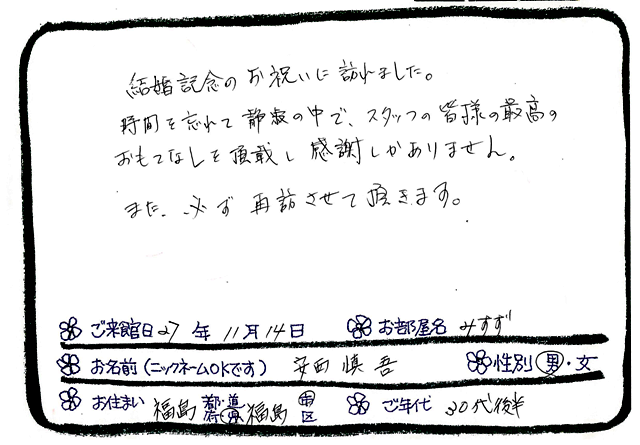 結婚記念のお祝いに訪れました。
時間を忘れて静寂の中で、スタッフの皆様の最高の
おもてなしを頂戴し感謝しかありません。
また、必ず再訪させて頂きます。
ご来館日 27年 11月 14日 お部屋名 みすず
お名前(ニックネームOKです) 安西 慎吾 性別 男・女
お住まい 福島 都・道・府・県 福島 市 区 ご年代 30代後半